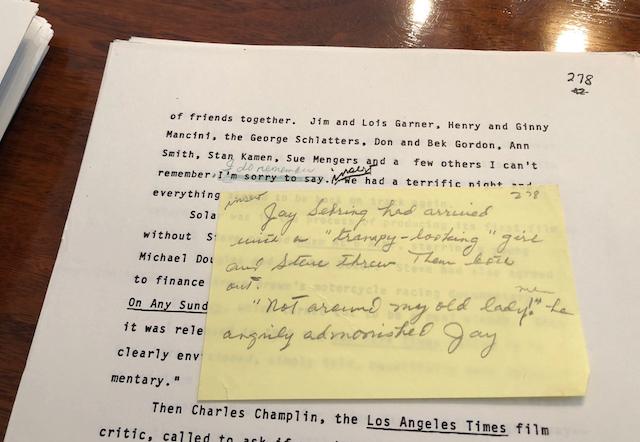 278
42
of friends together. Jim and Lois Garner, Henry and Ginny
Mancini, the George Schlatters, Don and Bek Gordon, Ann
Smith, Stan Kamen, Sue Mengers and a few others I can't
I do remember insert
remember, I'm sorry to say. we had a terrific night and
everything
Sola
without S
Michael Dou
to finance
On Any Sund
it was rele
clearly env
mentary."
insert 278
Jay Sebring had arrived
with a "trampy-looking" girl
and Steve threw them both
out.
me
"Not around my old lady!" he
angrily admonished Jay
Then Charles Champlin, the Los Angeles Times film
critic, called to ask if